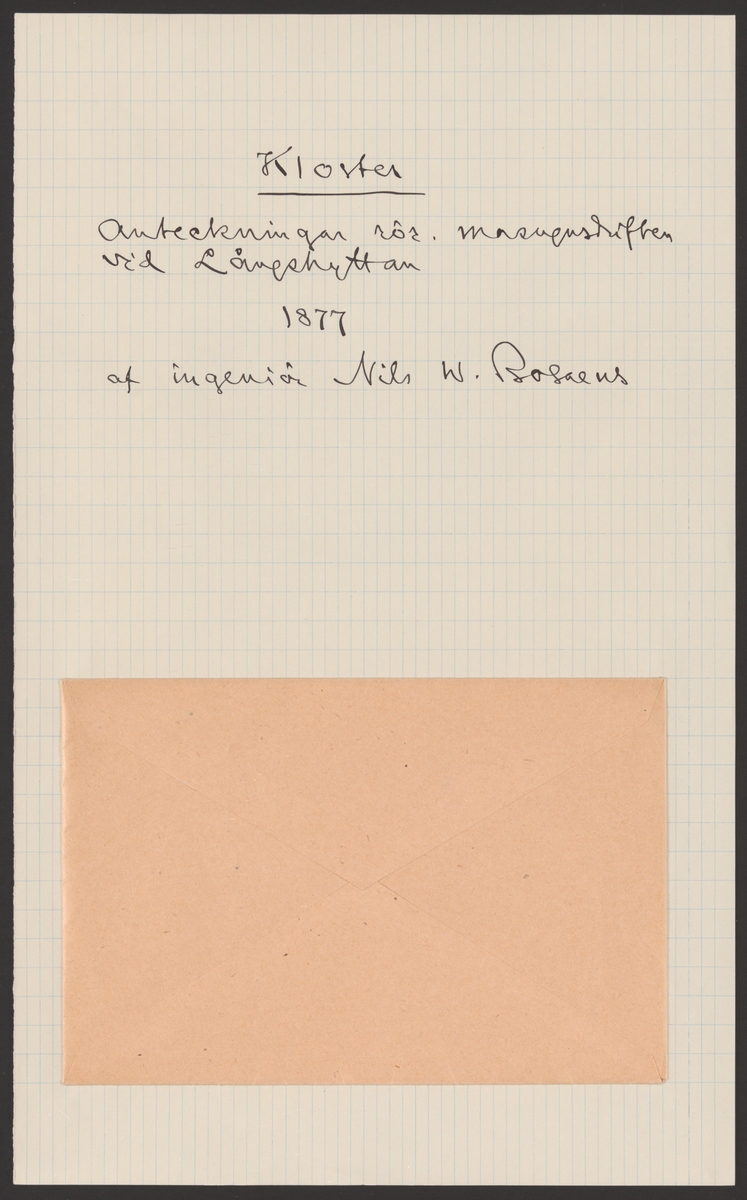 Kloster
Anteckningar rör. masugnsdriften
vid Långshyttan
1877
af ingeniör Nils W. Bosaeus